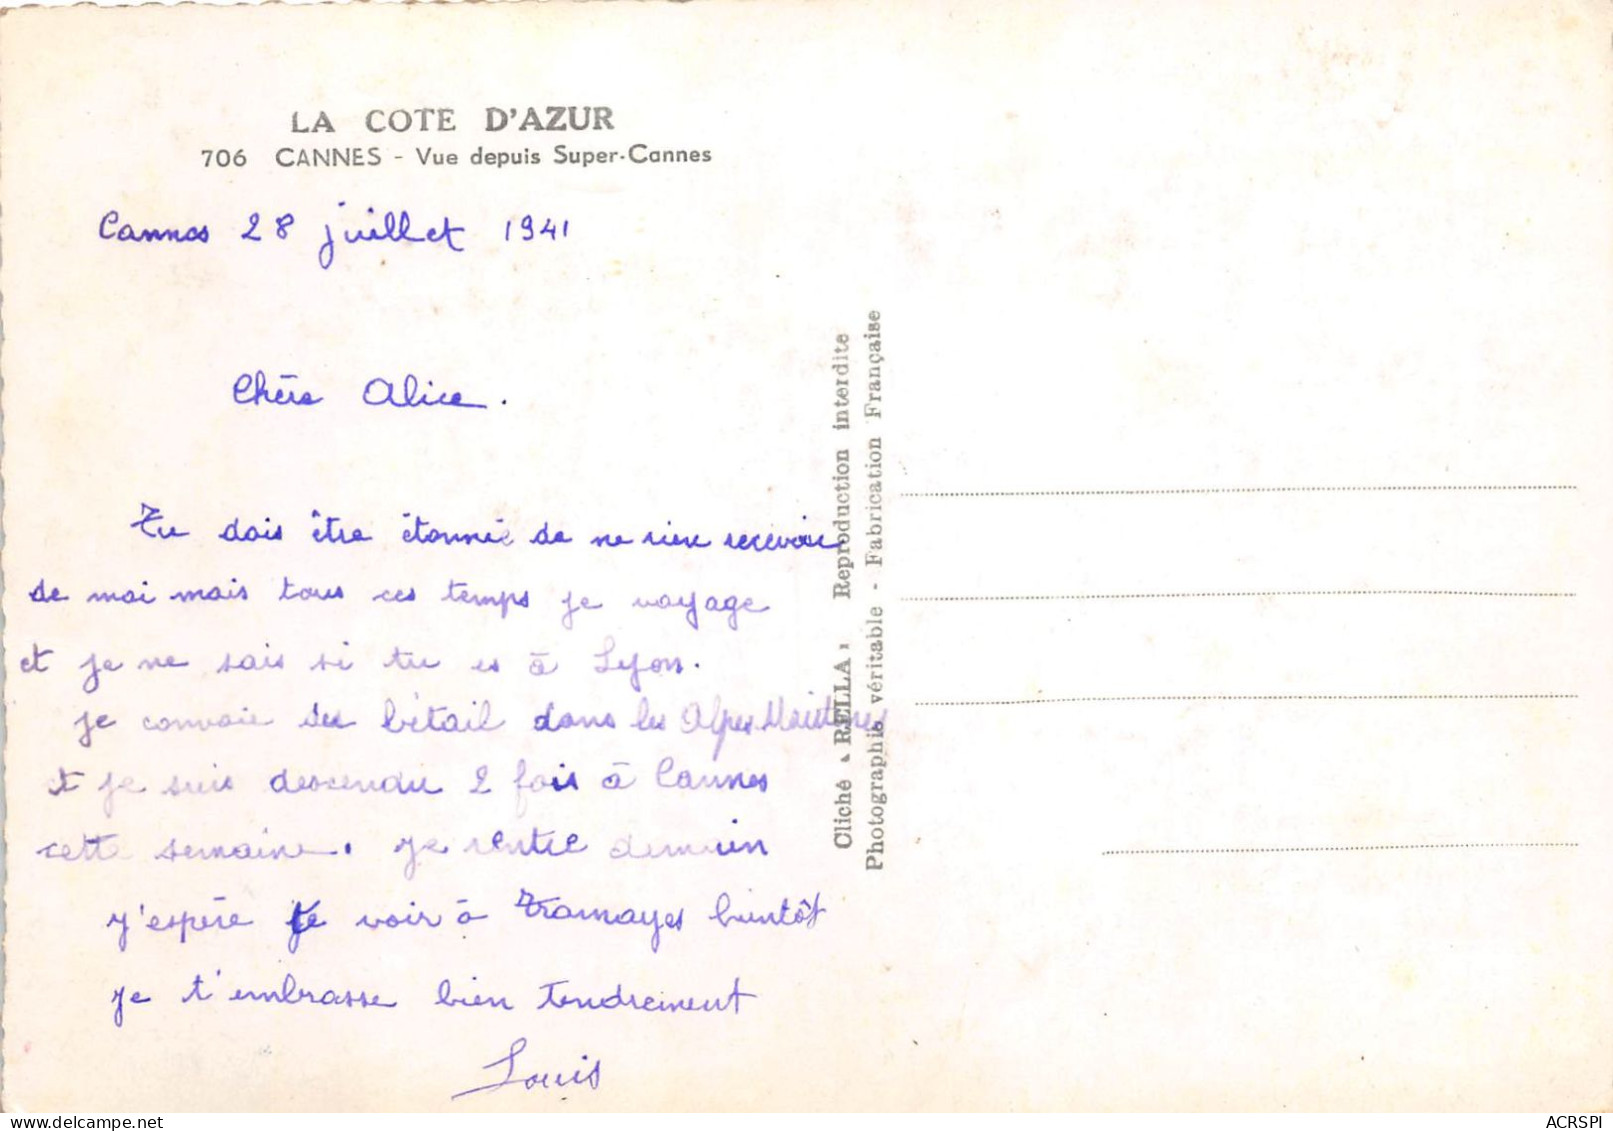 LA COTE D'AZUR
706 CANNES - Vue depuis Super-Cannes
Cannes 28 juillet 1941
Chère Alice.
Tu dois être étonnée de ne rien recevoir
de moi mais tous ces temps je voyage
et je ne sais si tu es à Lyon.
je convoie du bétail dans les Alpes Maritimes
et je suis descendu 2 fois à Cannes
cette semaine. je rentre demain
j'espère te voir à Tramayes bientôt
je t'embrasse bien tendrement
Louis
Cliché « RELLA » Reproduction interdite
Photographie véritable - Fabrication Française
ACRSPI